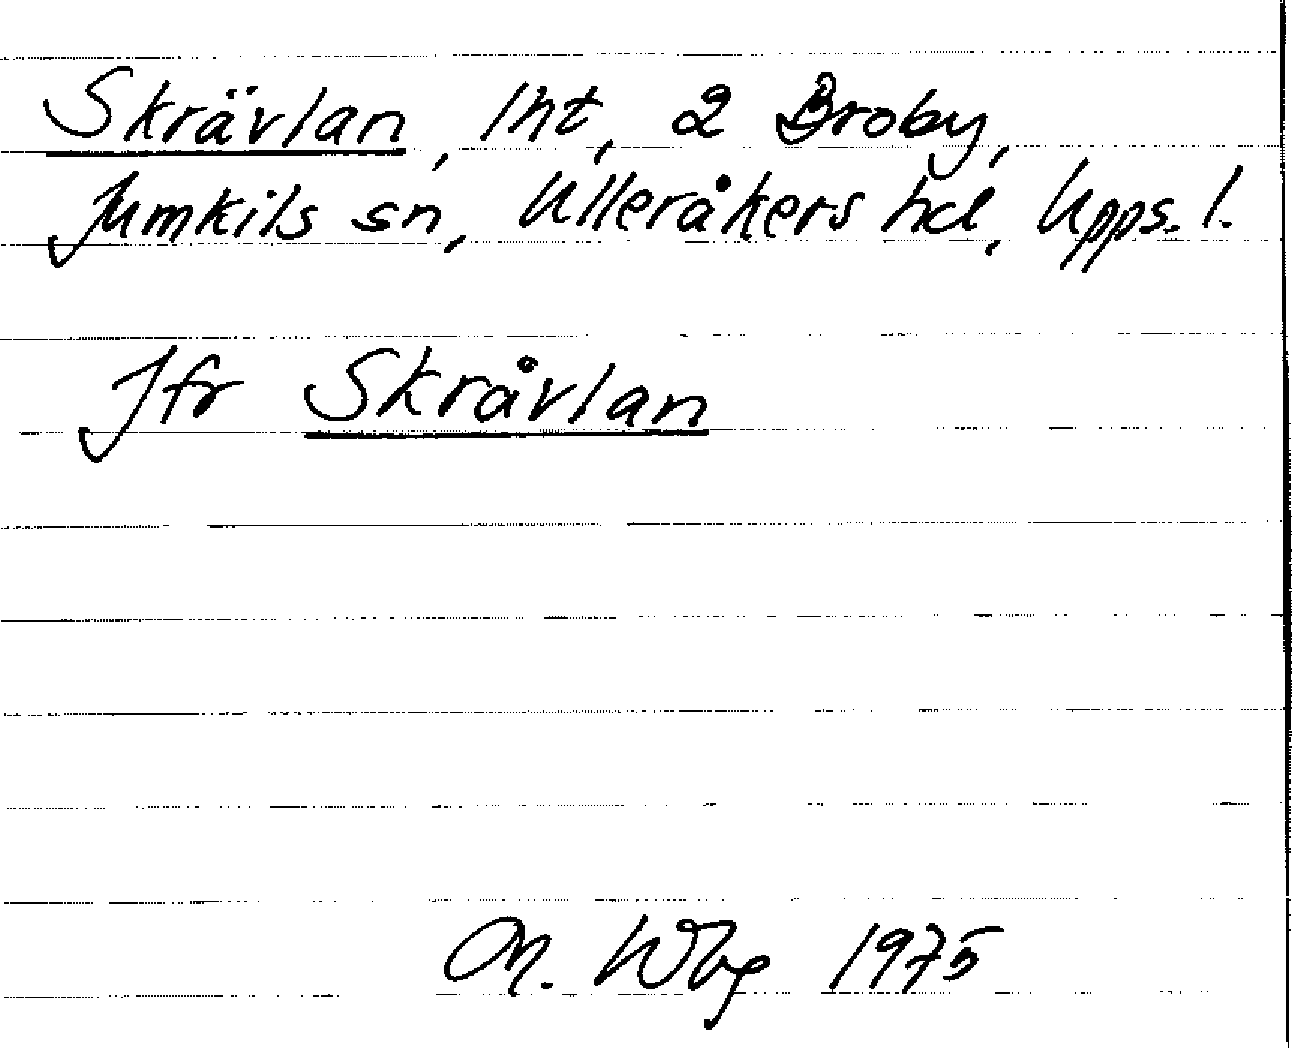 Skrävlan, lht, 2 Broby,
Jumkils sn, Ulleråkers hd, Upps. l.
Jfr Skråvlan
M. Wbg 1975